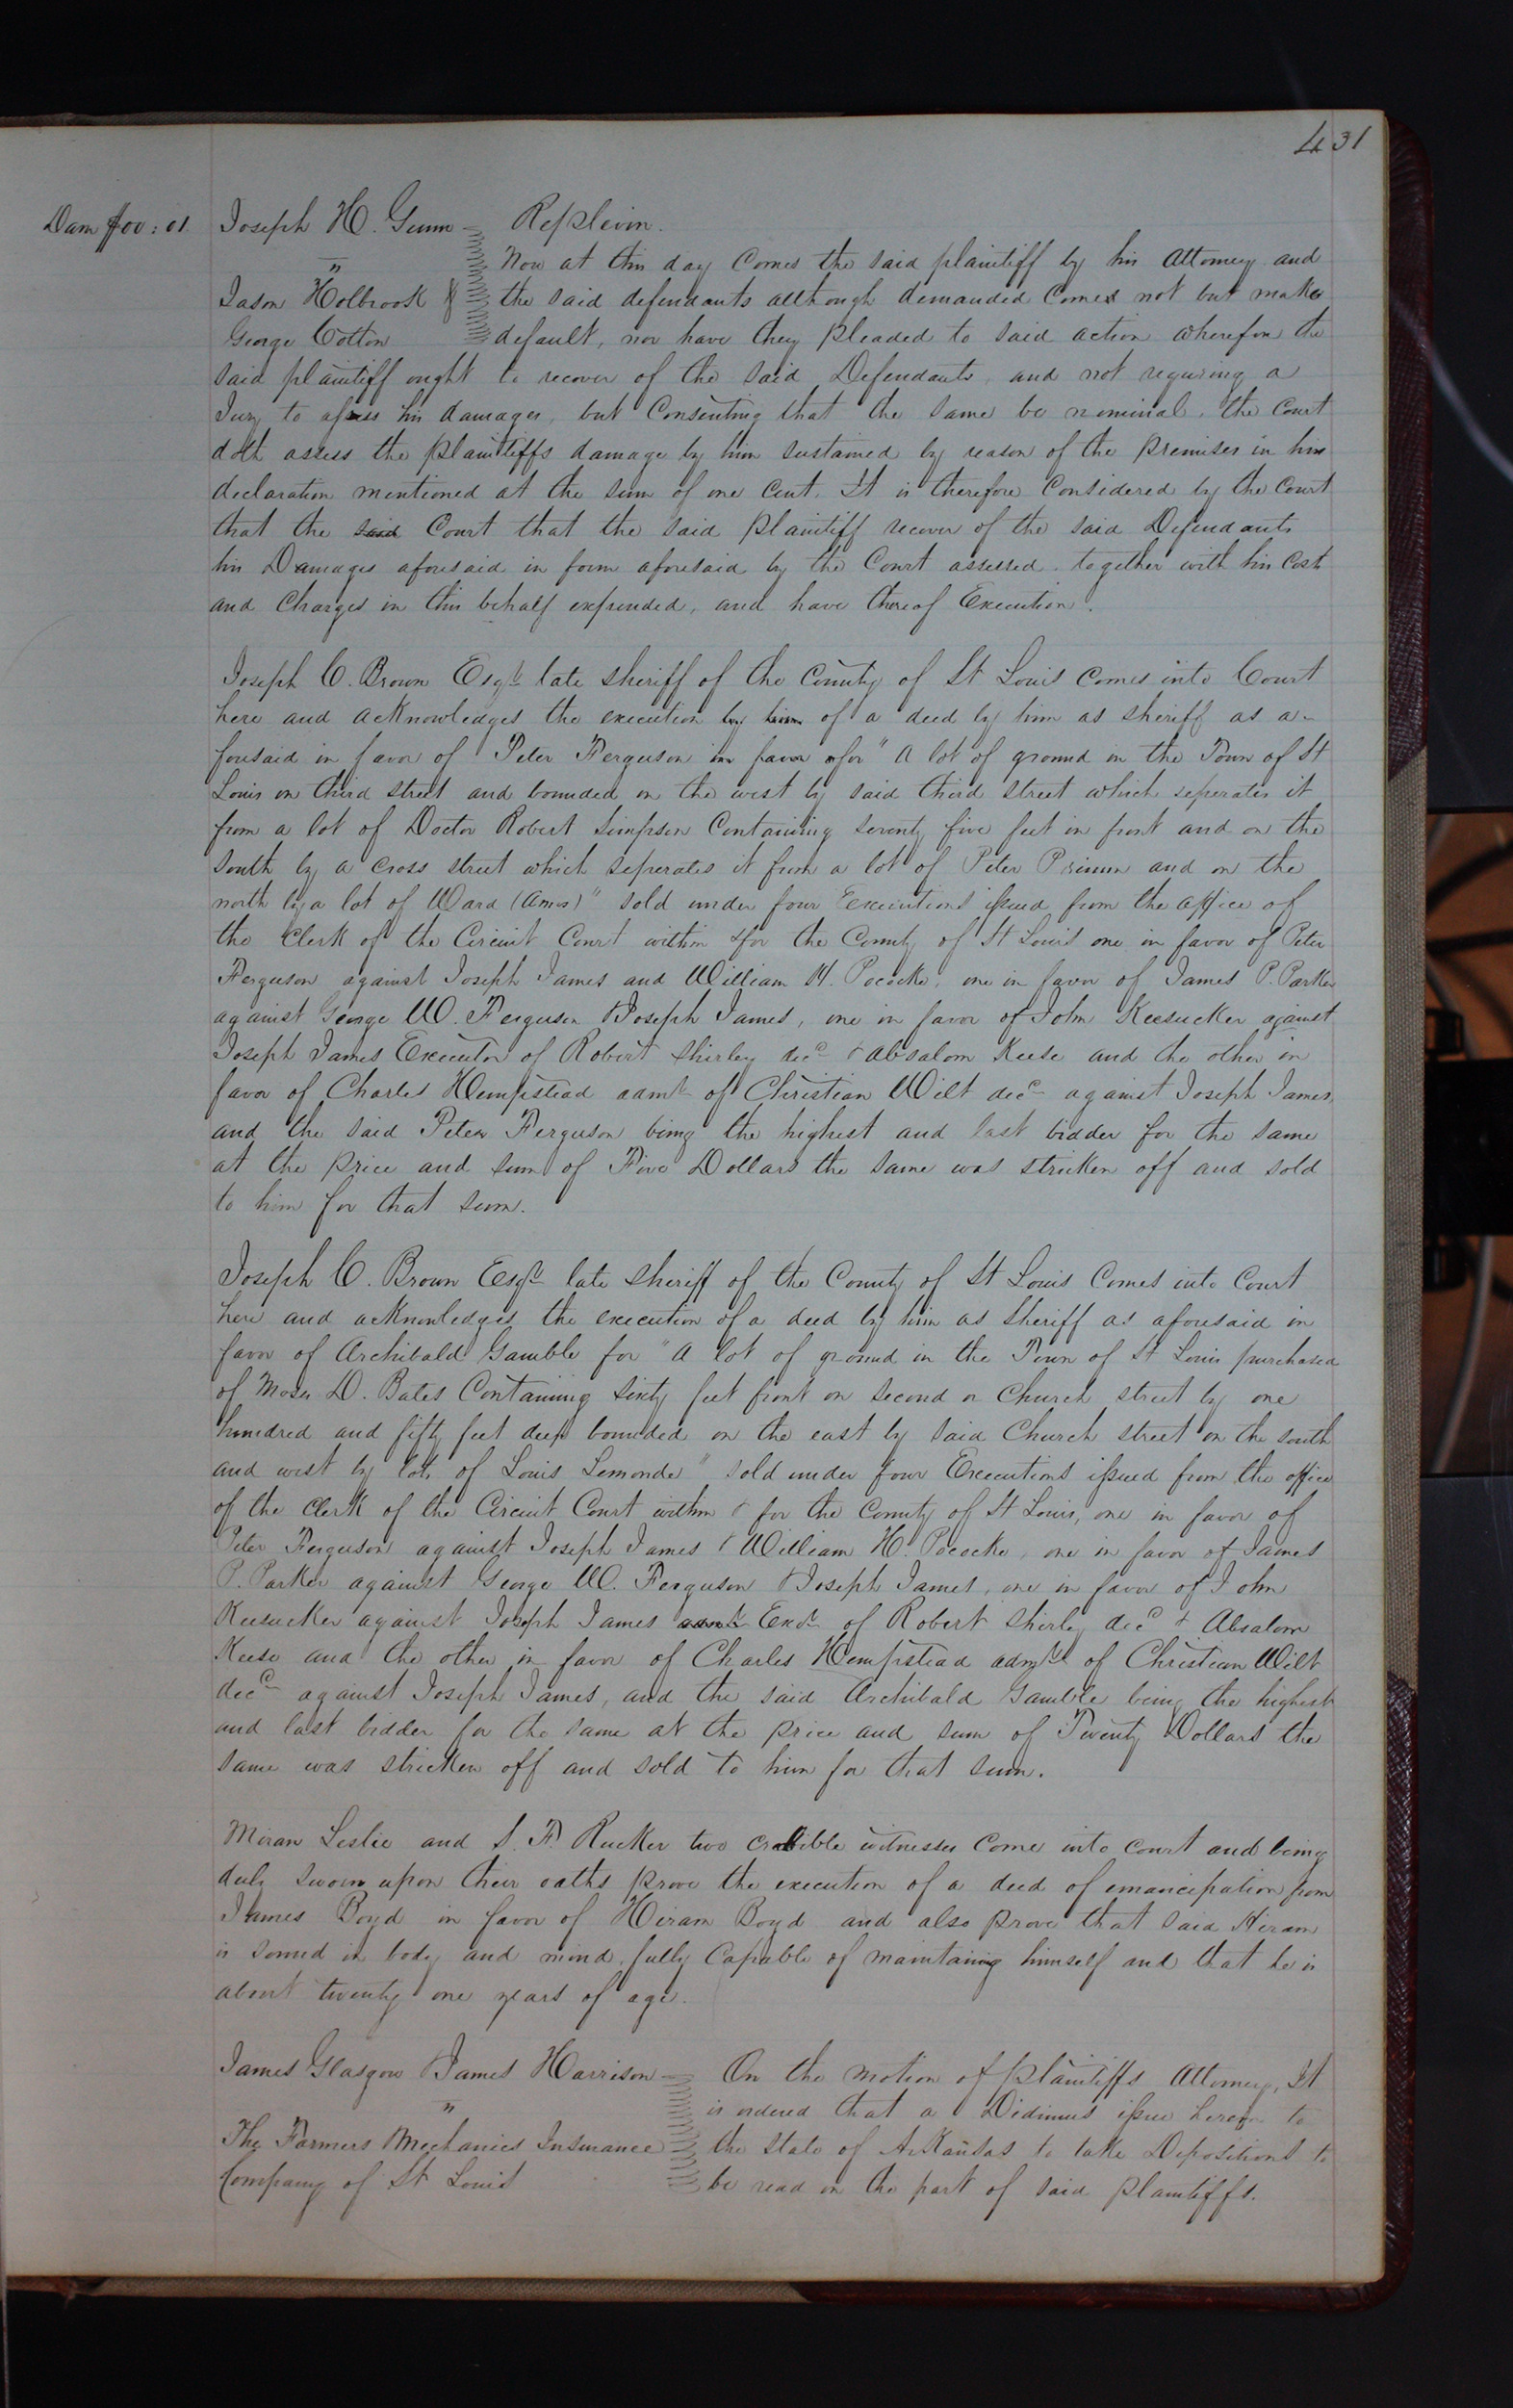 431
Dam $00:01. Joseph H. Gunn Replevin.
" Now at this day Comes the said plaintiff by his Attorney and
Jason Holbrook & the said defendants although demanded Comes not but makes
George Cotton default, nor have they pleaded to said action wherefore the
said plaintiff ought to recover of the said Defendants, and not requiring a
Jury to assess his damages, but Consenting that the same be nominal, the Court
doth assess the plaintiffs damage by him sustained by reason of the premises in his
declaration mentioned at the sum of one Cent. It is therefore Considered by the Court
that the said Court that the said plaintiff recover of the said Defendants
his Damages aforesaid in form aforesaid by the Court assessed. together with his Costs
and Charges in this behalf expended, and have thereof Execution.
Joseph C. Brown Esqr. late sheriff of the County of St Louis Comes into Court
here and acknowledges the execution by him of a deed by him as sheriff as a-
foresaid in favor of Peter Ferguson in favor of for " A lot of ground in the Town of St
Louis on third street and bounded on the west by said third street which seperates it
from a lot of Doctor Robert Simpson Containing seventy five feet in front and on the
south by a cross street which seperates it from a lot of Peter Primm and on the
north by a lot of Ward (Amos)" sold under four Executions issued from the office of
the Clerk of the Circuit Court within & for the County of St Louis one in favor of Peter
Ferguson against Joseph James and William H. Pococke, one in favor of James P. Parker
against George W. Ferguson & Joseph James, one in favor of John Keesucker against
Joseph James Executor of Robert Shirley decd & Absalom Keese and the other in
favor of Charles Hempstead admr of Christian Wilt decd against Joseph James,
and the said Peter Ferguson being the highest and last bidder for the same
at the price and sum of Five Dollars the same was stricken off and sold
to him for that sum.
Joseph C. Brown Esqr late sheriff of the County of St Louis Comes into Court
here and acknowledges the execution of a deed by him as sheriff as aforesaid in
favor of Archibald Gamble for " A lot of ground in the Town of St Louis purchased
of Moses D. Bates Containing sixty feet front on second or Church street by one
hundred and fifty feet deep bounded on the east by said Church street on the south
and west by lots of Louis Lemonde" sold under four Executions issued from the office
of the Clerk of the Circuit Court within & for the County of St Louis, one in favor of
Peter Ferguson against Joseph James & William H. Pococke, one in favor of James
P. Parker against George W. Ferguson & Joseph James, one in favor of John
Keesucker against Joseph James admr Exor of Robert Shirley decd & Absalom
Keese and the other in favor of Charles Hempstead admr of Christian Wilt
decd against Joseph James, and the said Archibald Gamble being the highest
and last bidder for the same at the price and sum of Twenty Dollars the
same was stricken off and sold to him for that sum.
Miran Leslie and S. F. Rucker two credible witnesses Come into Court and being
duly sworn upon their oaths prove the execution of a deed of emancipation from
James Boyd in favor of Hiram Boyd and also prove that said Hiram
is sound in body and mind, fully Capable of maintaining himself and that he is
about twenty one years of age.
James Glasgow & James Harrison On the motion of plaintiffs Attorney, It
" is ordered that a Didimus issue herein to
The Farmers Mechanics Insurance the state of Arkansas to take Depositions to
Company of St Louis be read on the part of said plaintiffs.